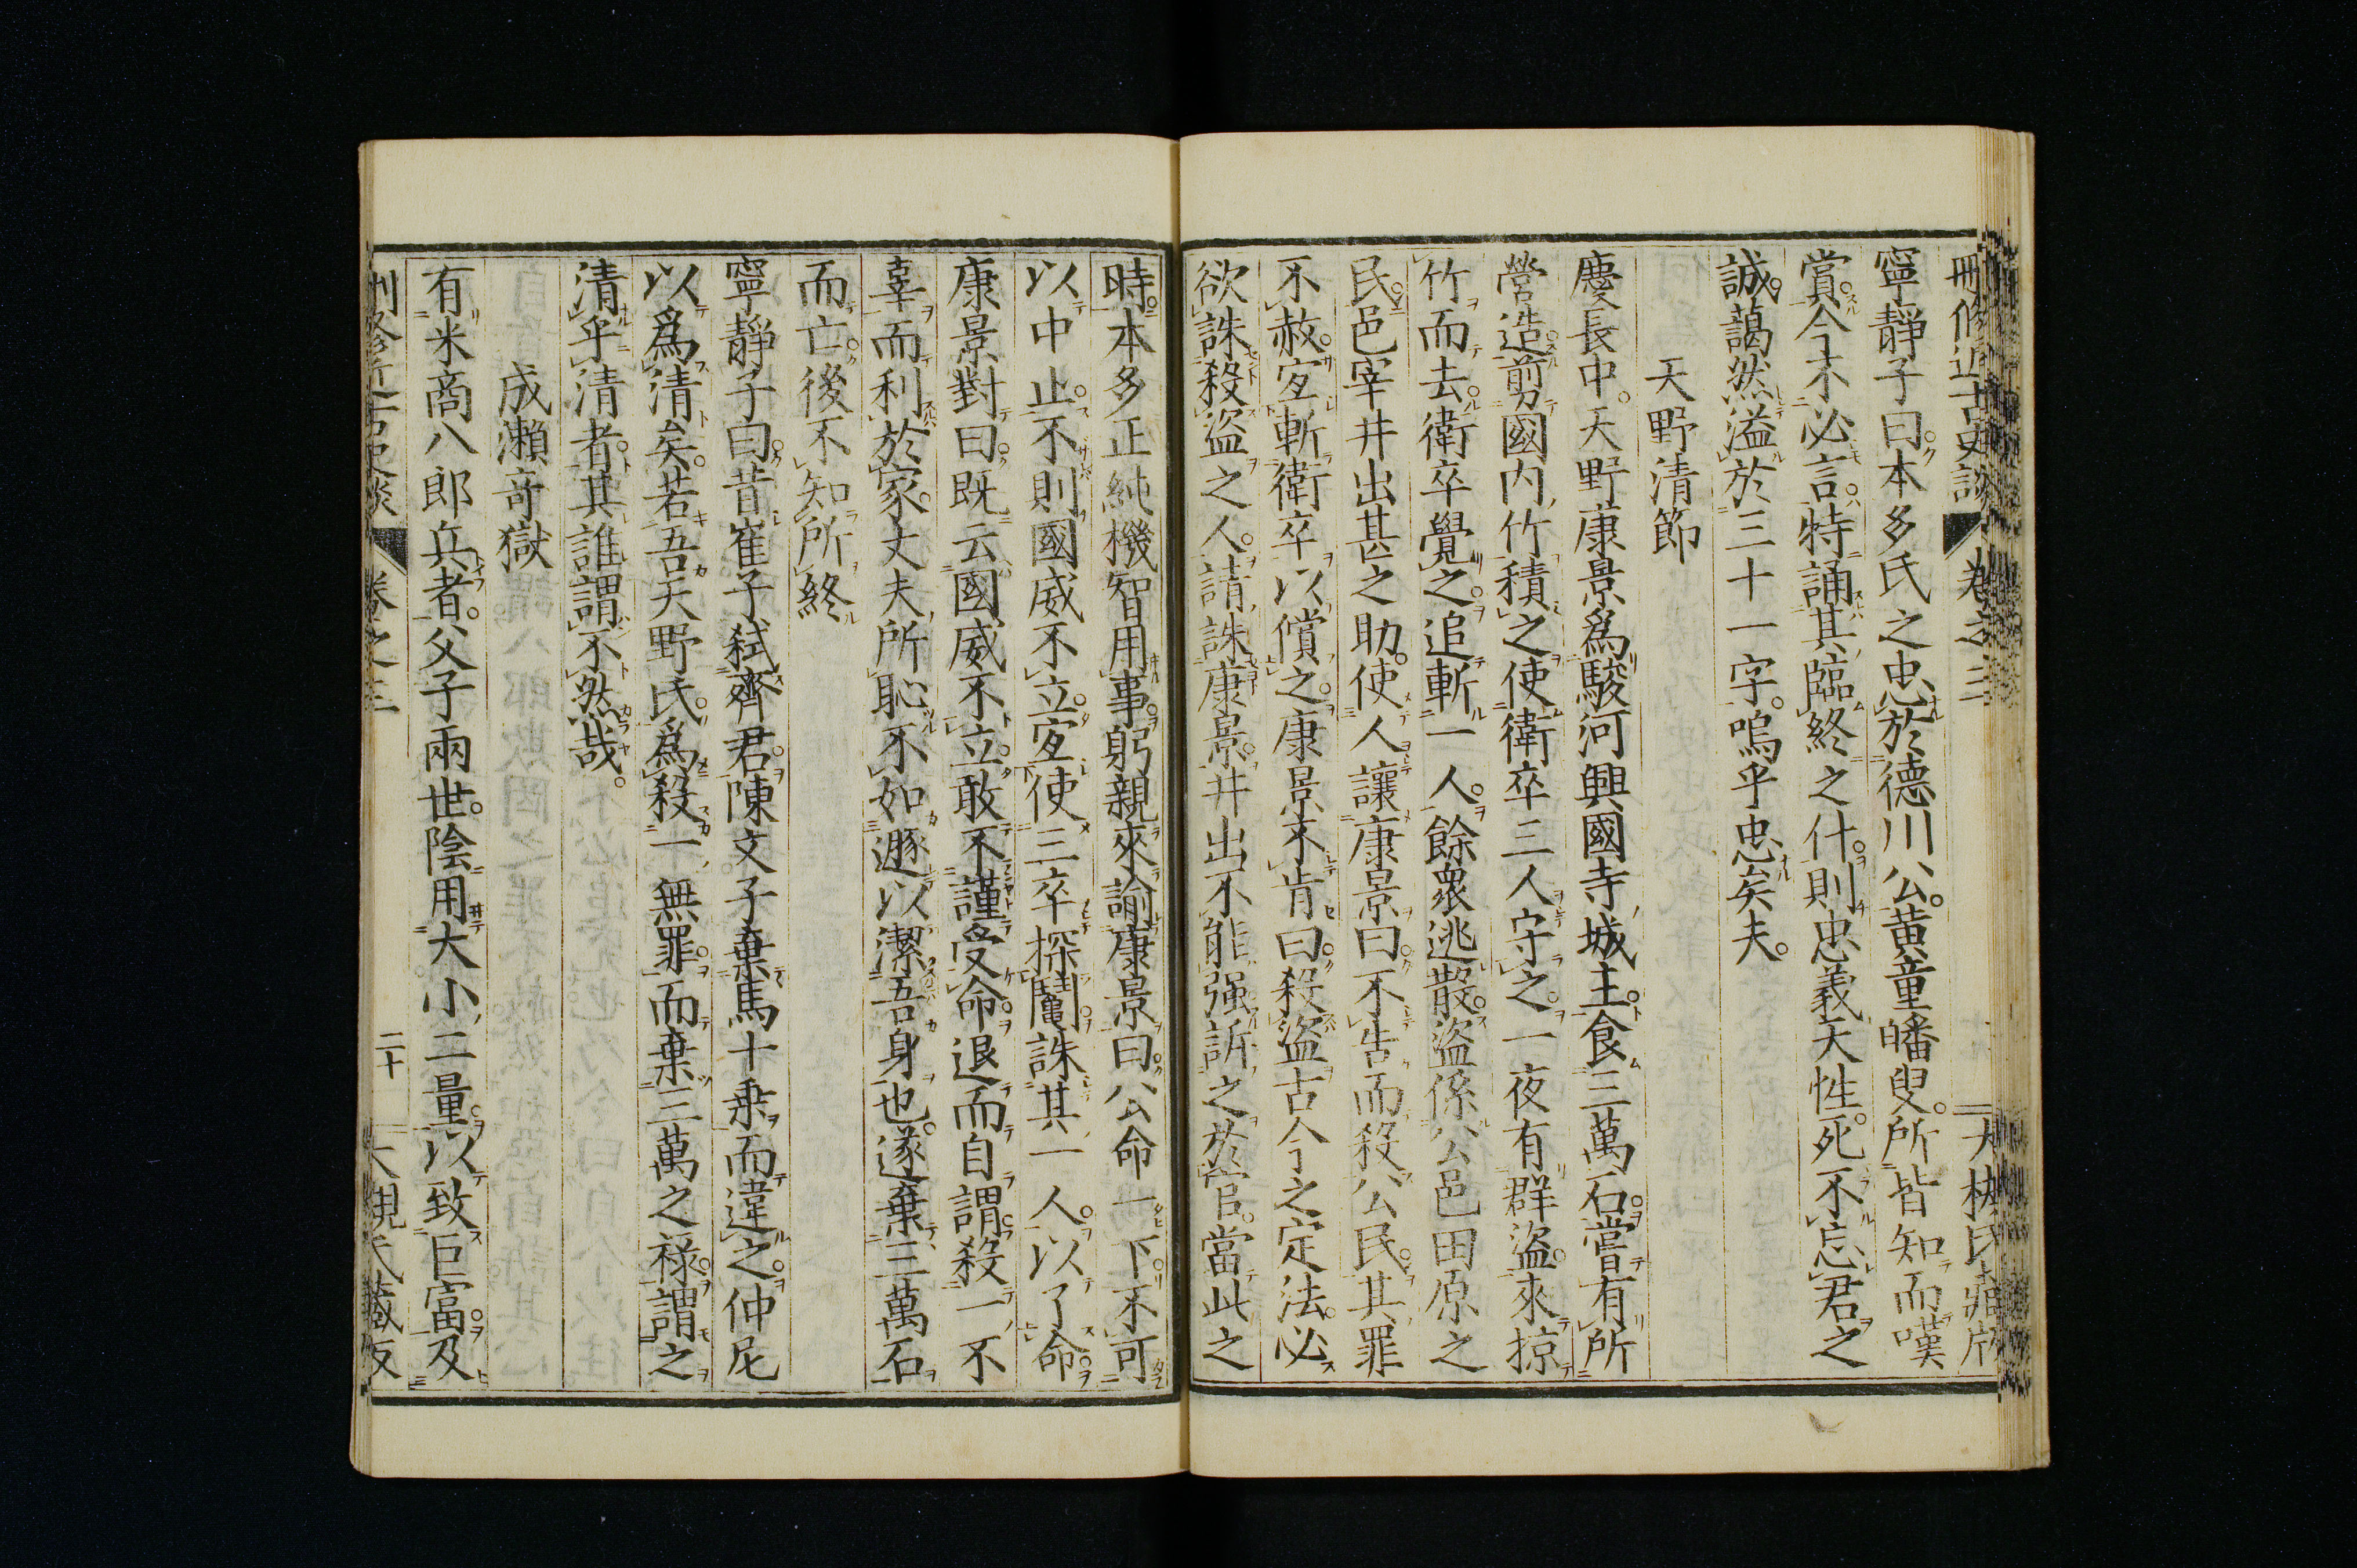 刪修近古史談 卷之三 大槻氏藏版
寧靜子曰。本多氏之忠於德川公。黃童皤叟。所皆知而嘆
賞。今不必言。特誦其臨終之什。則忠義天性。死不忘君之
誠。藹然溢於三十一字。嗚乎忠矣夫。
天野清節
慶長中。天野康景爲駿河興國寺城主。食三萬石。嘗有所
營造。剪國内竹積之。使衛卒三人守之。一夜有群盜。來掠
竹而去。衛卒覺之。追斬一人。餘衆逃散。盜係公邑田原之
民。邑宰井出甚之助。使人讓康景曰。不告而殺公民。其罪
不赦。宜斬衛卒以償之。康景不肯曰。殺盜古今之定法。必
欲誅殺盜之人。請誅康景。井出不能强訴之於官。當此之
時。本多正純機智用事。躬親來諭康景曰。公命一下。不可
以中止。不則國威不立。宜使三卒探鬮誅其一人。以了命。
康景對曰。既云國威不立。敢不謹受命。退而自謂。殺一不
辜而利於家。丈夫所恥。不如遯以潔吾身也。遂棄三萬石
而亡。後不知所終
寧靜子曰。昔崔子弑齊君。陳文子棄馬十乘而違之。仲尼
以爲清矣。若吾天野氏。爲殺一無罪。而棄三萬之祿。謂之
清乎。清者。其誰謂不然哉。
成瀬奇獄
有米商八郎兵者。父子兩世。陰用大小二量。以致巨富。及
刪修近古史談 卷之三 二十 大槻氏藏版